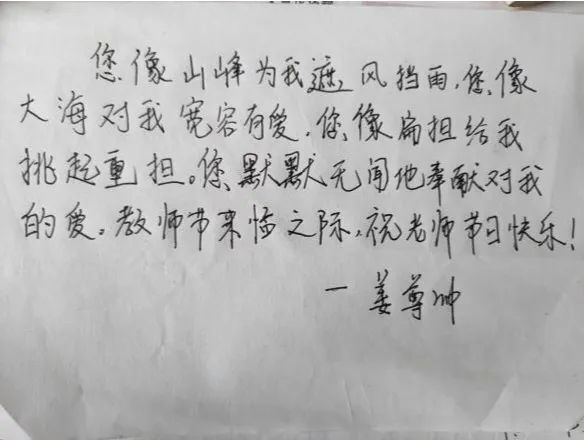 您像山峰为我遮风挡雨,您像
大海对我宽容有爱,您像扁担给我
挑起重担。您默默无闻地奉献对我
的爱。教师节来临之际,祝老师节日快乐!
一姜尊帅